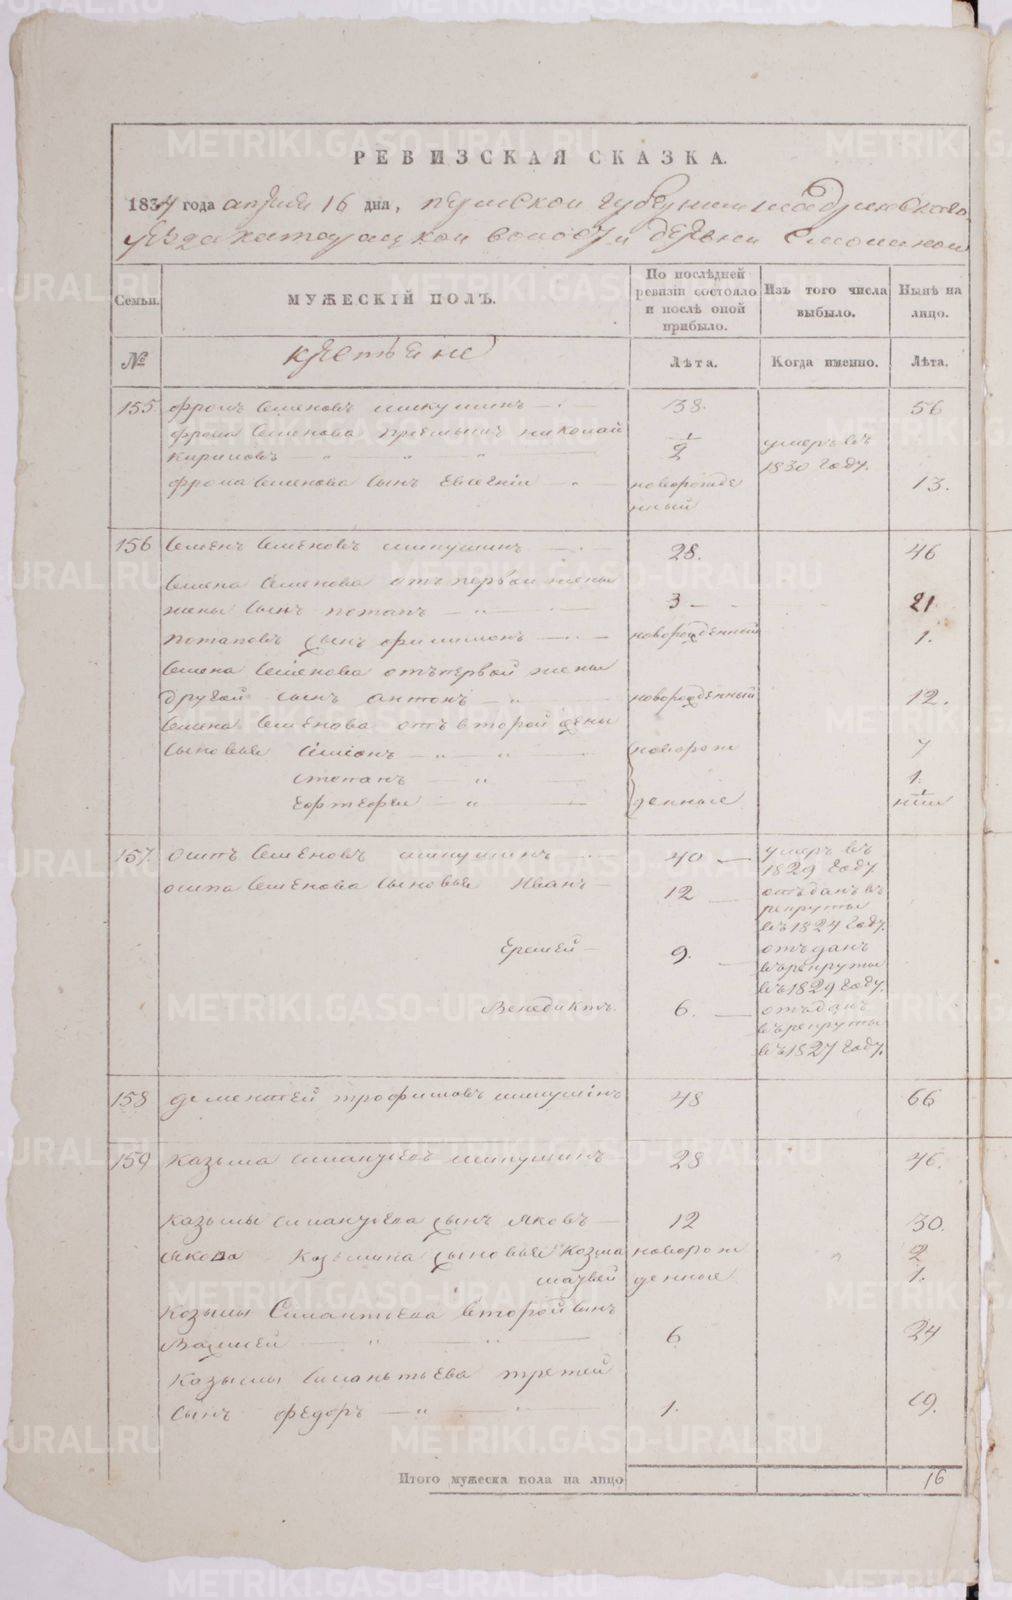 РЕВИЗСКАЯ СКАЗКА.
1834 года апреля 16 дня, пермской губернии шадринскаго
уезда катайской волости деревни
Семьи. МУЖЕСКІЙ ПОЛЪ. По послѣдней ревизіи состояло и послѣ оной прибыло. Изъ того числа выбыло. Нынѣ на лицо.
№ крестьяне Лѣта. Когда именно. Лѣта.
155 фролъ Семеновъ 38. 56
Семенова приемышъ николай 1/2 умеръ въ
кириловъ 1830 году.
фрола Семенова Сынъ Евгеній новорожде 13.
нный
156 Семенъ Семеновъ 28. 46
Семена Семенова отъ первой жены
жены Сынъ потапъ 3 21
потаповъ сынъ филимонъ новорожденный 1.
Семена Семенова отъ первой жены
другой сынъ антонъ новорожденный 12.
Семена Семенова отъ второй жены
Сыновья Симіонъ новорож 7
степанъ 1.
денные
157 осипъ Семеновъ 40 умеръ въ
1829 году.
осипа Семенова Сыновья Иванъ 12 отъданъ въ
рекруты
въ 1824 году.
Еремей 9. отъданъ
въ рекруты
въ 1829 году.
Венедиктъ. 6. отъданъ
въ рекруты
въ 1827 году.
158 дементей трофимовъ 48 66
159 Казьма 28 46.
Казьмы сынъ яковъ 12 30.
якова Козьмина сыновья Козма новорож 2
матвей денные 1.
Козьмы второй сынъ
6 24
Казьмы третей
Сынъ федоръ 1. 19.
Итого мужеска пола на лицо 16
METRIKI.GASO-URAL.RU